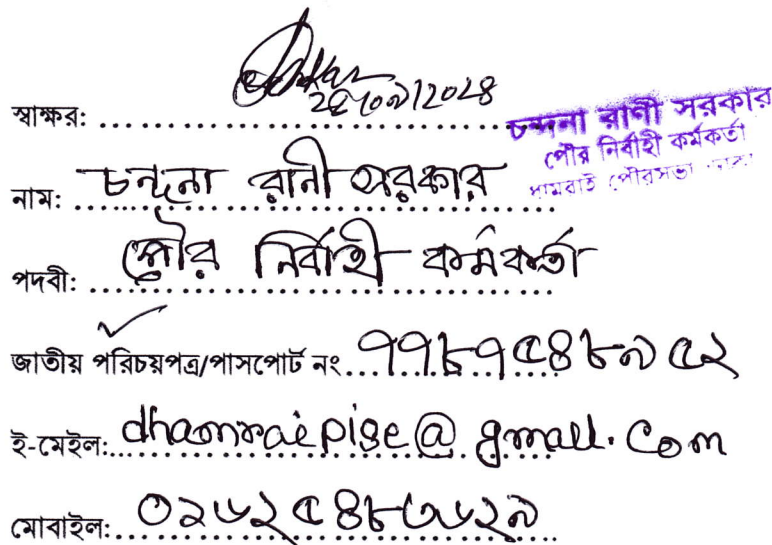 স্বাক্ষর: ২৫/০৯/২০২৪
চন্দনা রাণী সরকার
পৌর নির্বাহী কর্মকর্তা
ধামরাই পৌরসভা ঢাকা
নাম: চন্দনা রানী সরকার
পদবী: পৌর নির্বাহী কর্মকর্তা
জাতীয় পরিচয়পত্র/পাসপোর্ট নং ৭৭৮৭৫৪৮৯৫২
ই-মেইল: dhamraipige@gmail.com
মোবাইল: